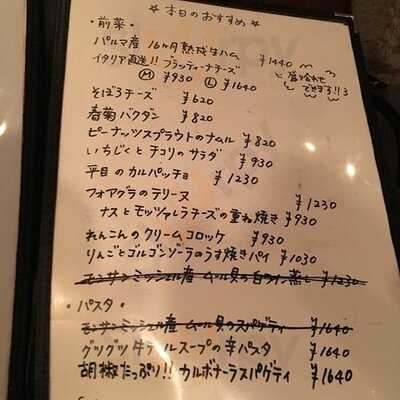 ☆ 本日のおすすめ ☆
・前菜・
パルマ産 16ヶ月熟成生ハム ¥1440
イタリア直送!! ブラッティーナチーズ
Ⓜ ¥930 Ⓛ ¥1640
と盛り合わせ
できます!!
そぼろチーズ ¥620
春菊バクダン ¥820
ピーナッツスプラウトのナムル ¥820
いちじくとチコリのサラダ ¥930
平目のカルパッチョ ¥1230
フォアグラのテリーヌ ¥1230
ナスとモッツァレラチーズの重ね焼き ¥930
れんこんのクリームコロッケ ¥930
りんごとゴルゴンゾーラのうす焼きパイ ¥1030
モンサンミッシェル産 ムール貝の白ワイン蒸し ¥1230
・パスタ・
モンサンミッシェル産 ムール貝のスパゲティ ¥1640
グツグツ牛テールスープの辛パスタ ¥1640
胡椒たっぷり!! カルボナーラスパゲティ ¥1640